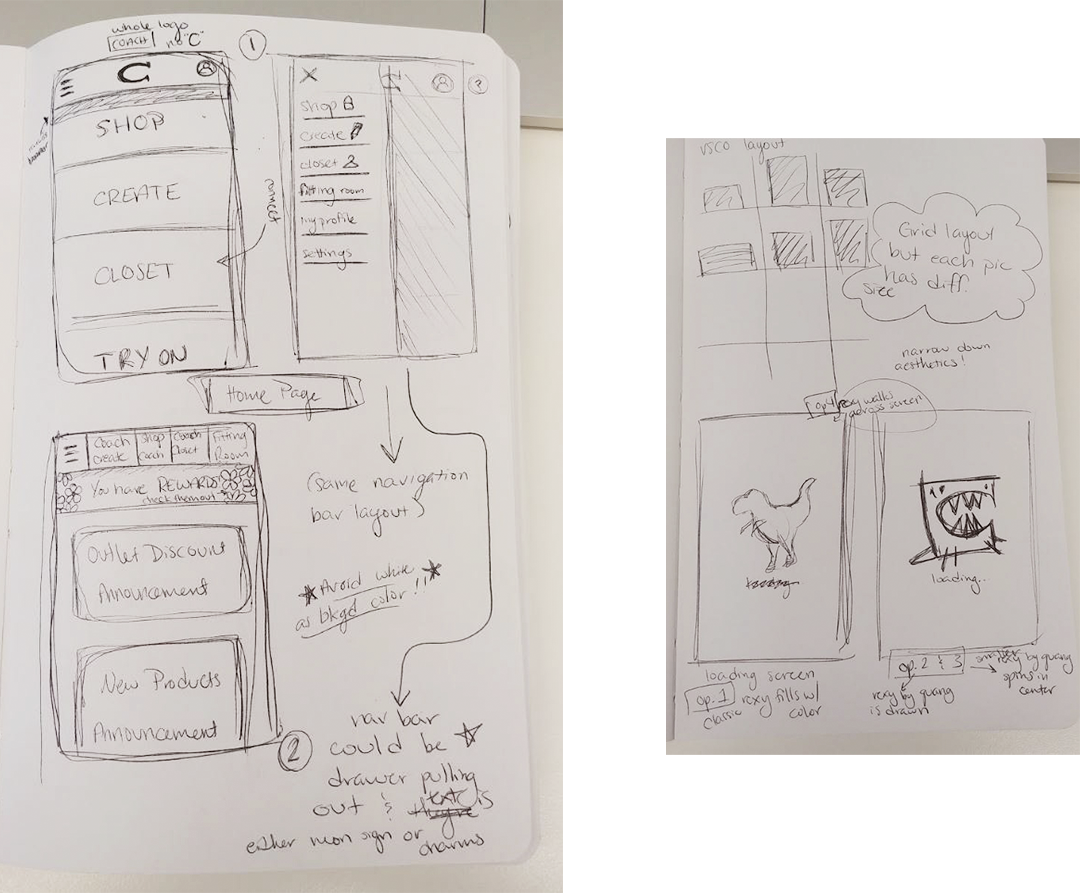 whole logo
COACH no "C"
1
C
SHOP
CREATE
CLOSET
TRY ON
connect
X
C
?
Shop
create
closet
fitting room
my profile
settings
Home Page
Coach create
Shop Coach
Coach Closet
Fitting Room
You have REWARDS!
check them out
Outlet Discount
Announcement
New Products
Announcement
2
(same navigation
bar layout)
Avoid white
as bkgd color!!
nav bar
could be
drawer pulling
out & text is
either neon sign or
charms
VSCO layout
Grid layout
but each pic
has diff.
size
narrow down
aesthetics!
op4 rexy walks
across screen
loading..
loading screen
op. 1 rexy fills w/
classic color
op. 2 & 3
smaller rexy by quang
spins in
center
rexy by quang
is drawn